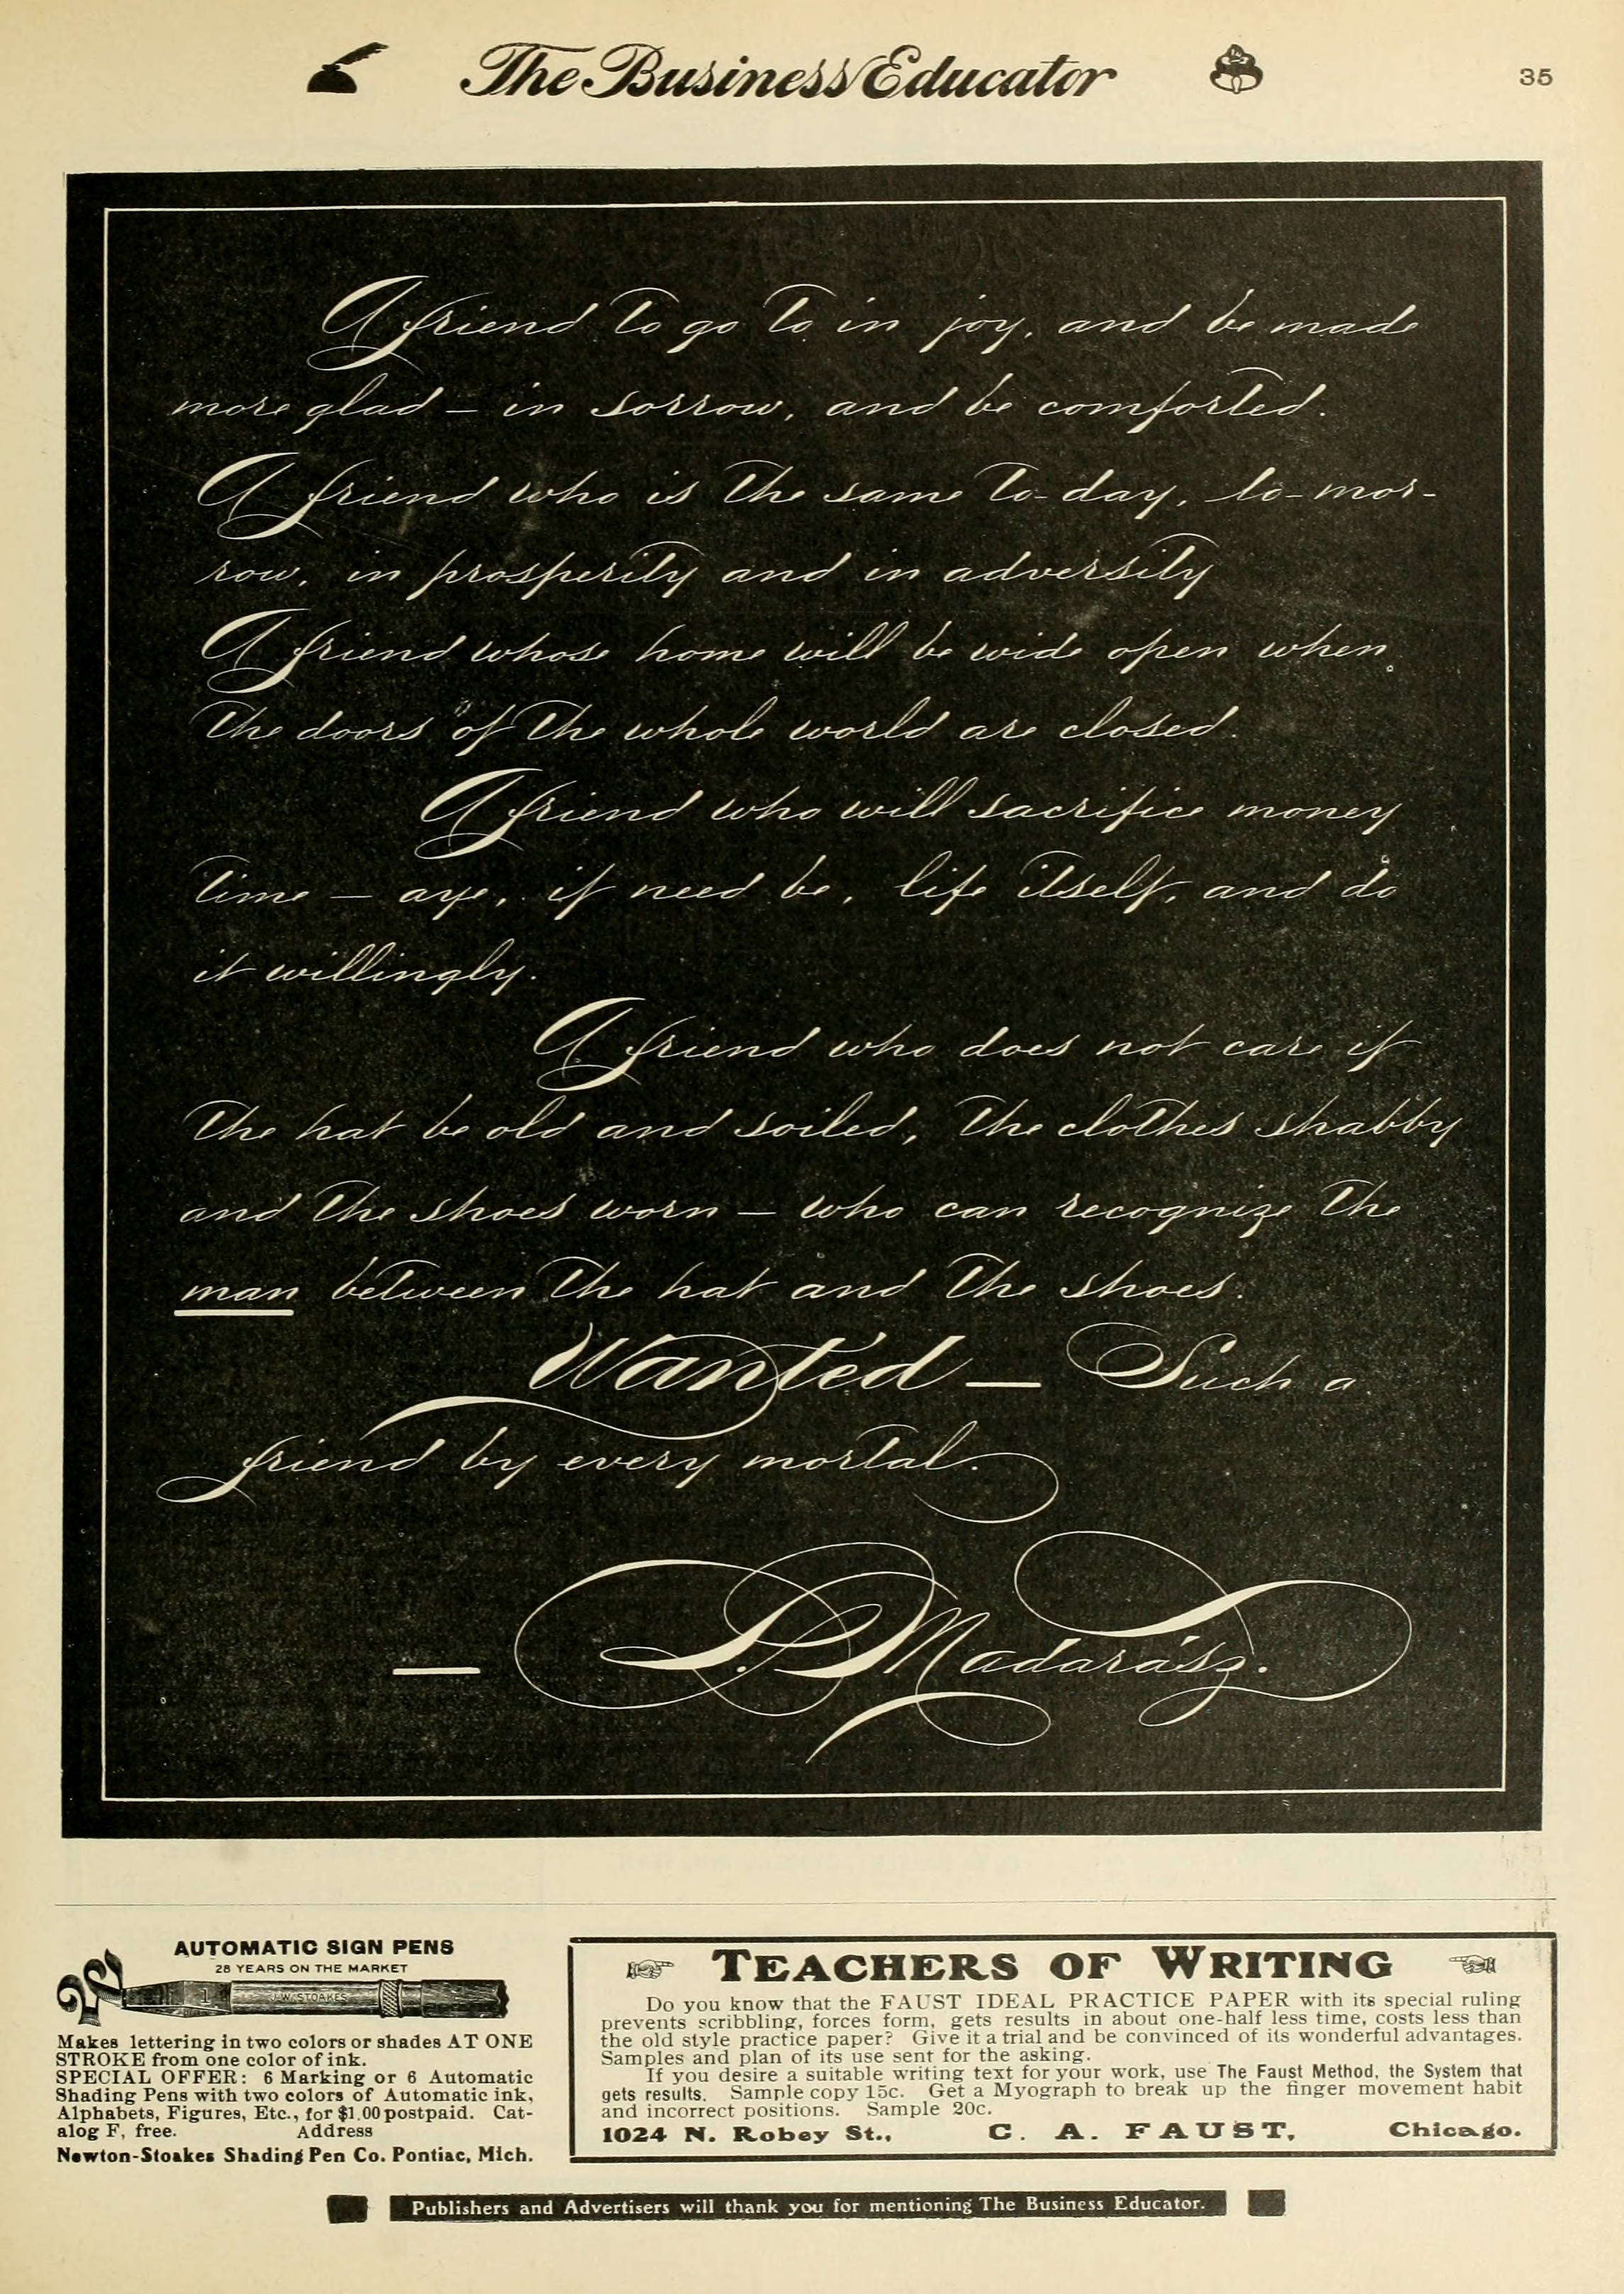 The Business Educator
35
A friend to go to in joy, and be made
more glad — in sorrow, and be comforted.
A friend who is the same to-day, to-mor-
row, in prosperity and in adversity
A friend whose home will be wide open when
the doors of the whole world are closed.
A friend who will sacrifice money
time — aye, if need be, life itself, and do
it willingly.
A friend who does not care if
the hat be old and soiled, the clothes shabby
and the shoes worn — who can recognize the
man between the hat and the shoes.
Wanted — Such a
friend by every mortal.
— L. Madarász.
AUTOMATIC SIGN PENS
28 YEARS ON THE MARKET
1 J.W. STOAKES
Makes lettering in two colors or shades AT ONE
STROKE from one color of ink.
SPECIAL OFFER: 6 Marking or 6 Automatic
Shading Pens with two colors of Automatic ink,
Alphabets, Figures, Etc., for $1.00 postpaid. Cat-
alog F, free. Address
Newton-Stoakes Shading Pen Co. Pontiac, Mich.
TEACHERS OF WRITING
Do you know that the FAUST IDEAL PRACTICE PAPER with its special ruling
prevents scribbling, forces form, gets results in about one-half less time, costs less than
the old style practice paper? Give it a trial and be convinced of its wonderful advantages.
Samples and plan of its use sent for the asking.
If you desire a suitable writing text for your work, use The Faust Method, the System that
gets results. Sample copy 15c. Get a Myograph to break up the finger movement habit
and incorrect positions. Sample 20c.
1024 N. Robey St., C. A. FAUST, Chicago.
Publishers and Advertisers will thank you for mentioning The Business Educator.